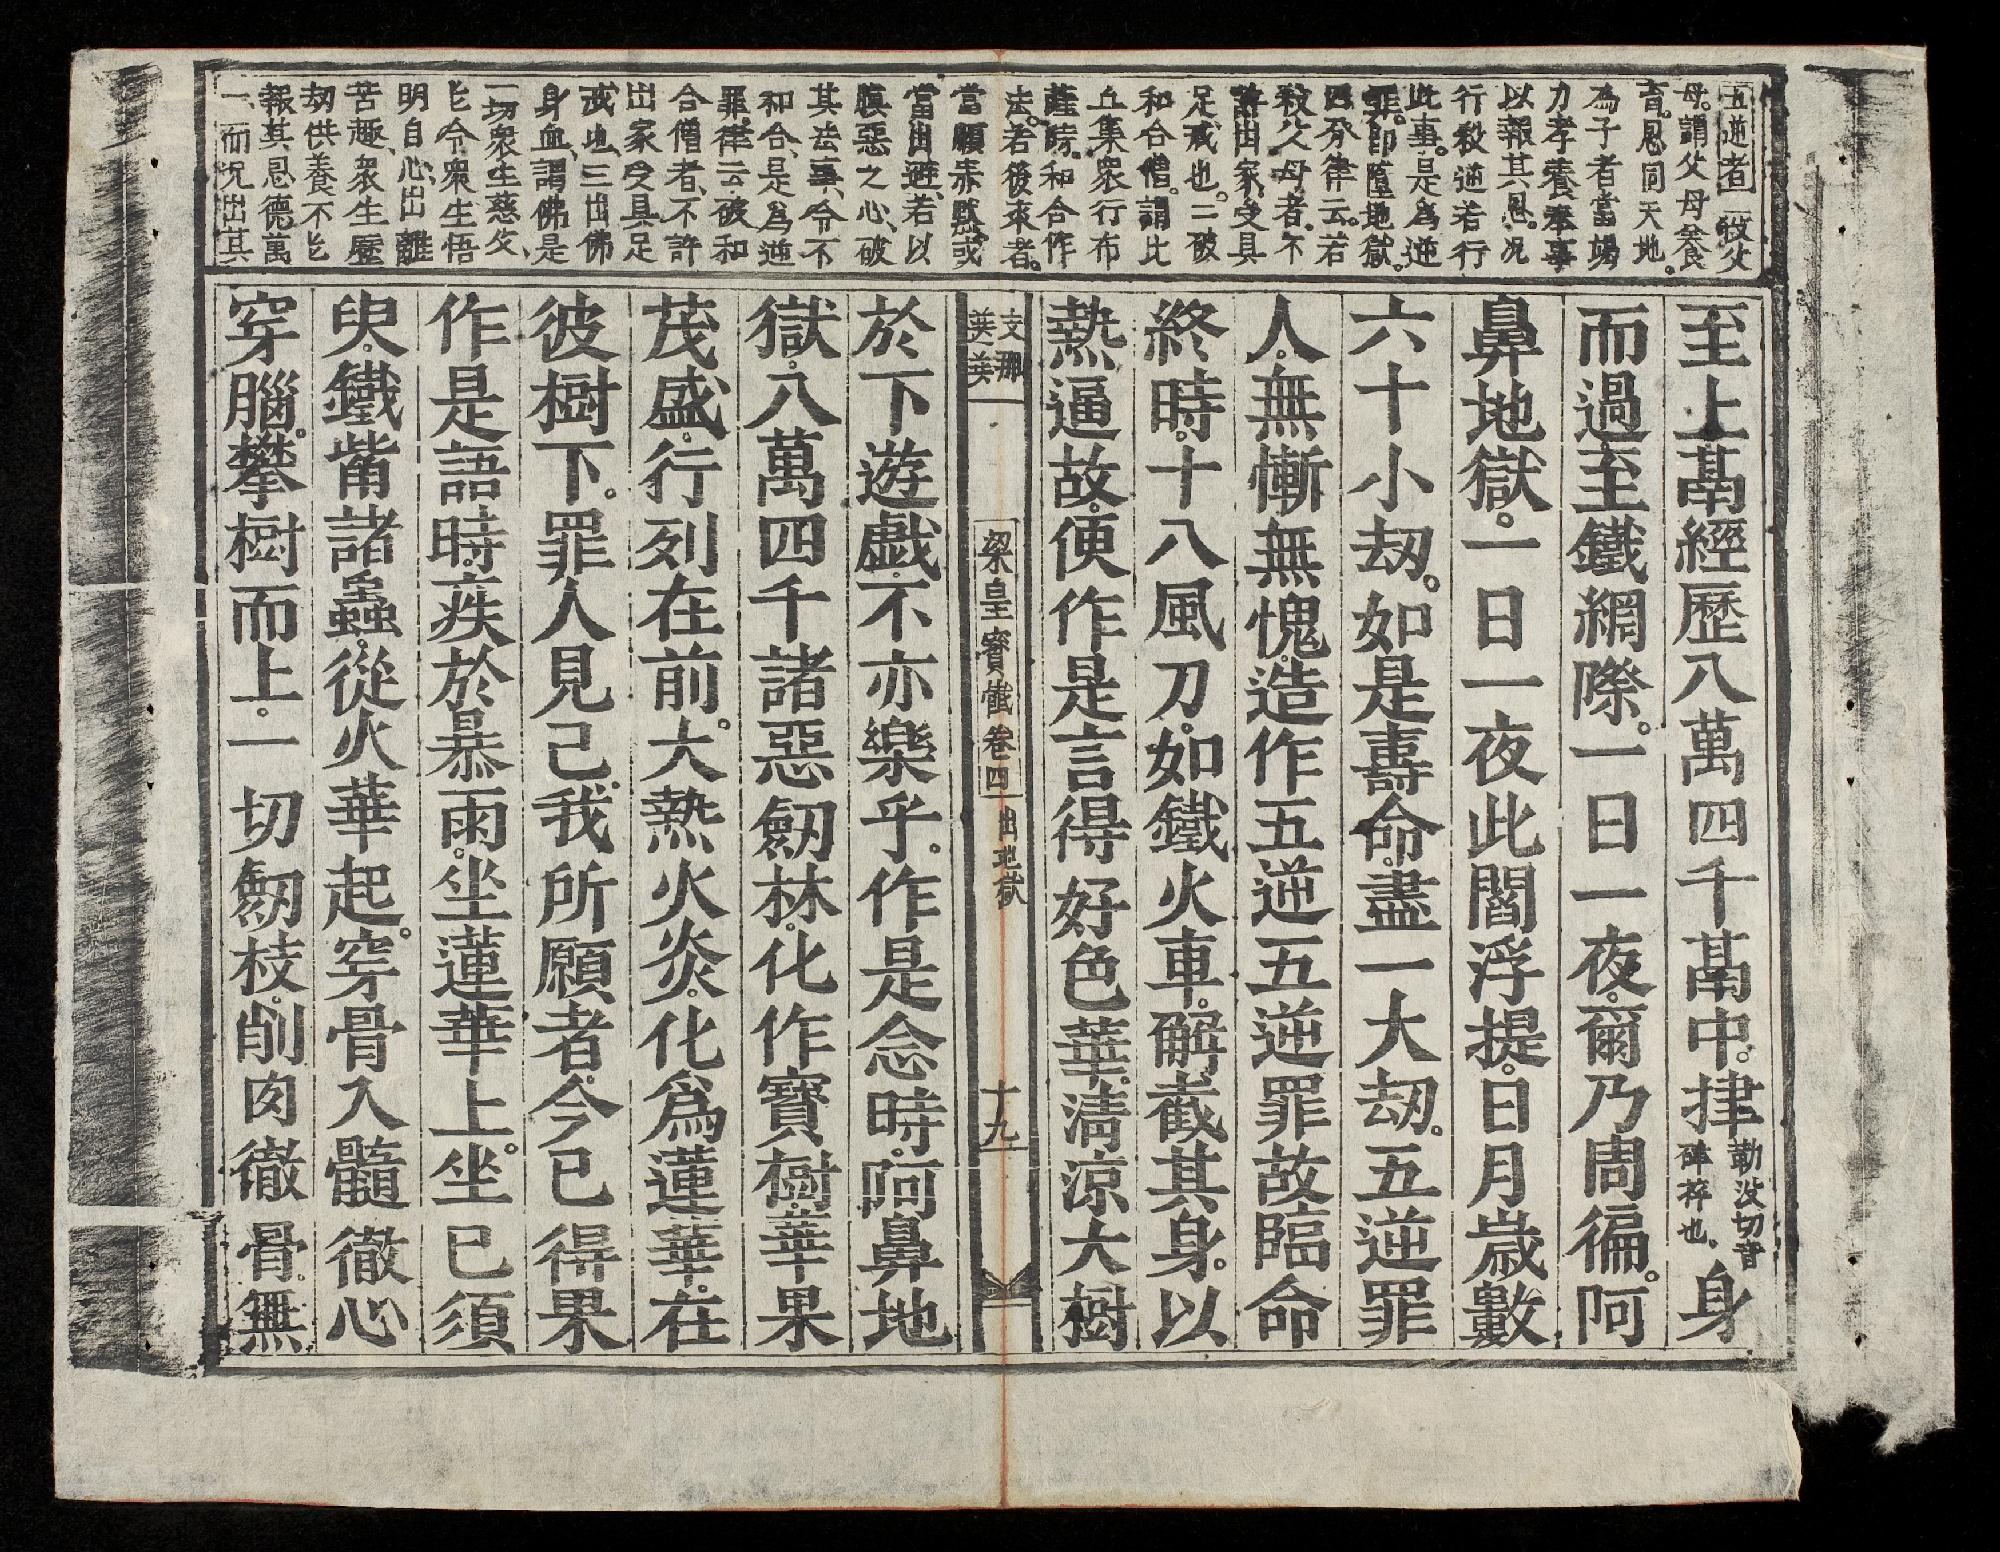 五逆者一殺父
母。謂父母養
育。恩同天地。
為子者當竭
力孝養奉事
以報其恩。况
行殺逆若行
此事。是為逆
罪。即墮地獄。
四分律云。若
殺父母者。不
許出家。受具
足戒也。二破
和合僧。謂比
丘集衆行布
薩時。和合作
法。若後來者。
當願赤默。或
當出避。若以
瞋惡之心、破
其法事、令不
和合、是為逆
罪。律云、破和
合僧者、不許
出家受具足
戒也、三出佛
身血、謂佛是
一切衆生慈父、
能令衆生悟
明自心、出離
苦趣、衆生歷
劫供養不能
報其恩德萬
一、而况出其
至上鬲經歷八萬四千鬲中。㨘勒没切音硉捽也。身
而過至鐵網際。一日一夜。爾乃周徧。阿
鼻地獄。一日一夜此閻浮提。日月歲數
六十小劫。如是壽命。盡一大劫。五逆罪
人。無慚無愧。造作五逆五逆罪故臨命
終時。十八風刀。如鐵火車。解截其身。以
熱逼故。便作是言得好色華。清凉大樹
支那
撰著
梁皇寶懺卷四 出地獄 十九
於下遊戯。不亦樂乎。作是念時。阿鼻地
獄。八萬四千諸惡劒林。化作寶樹。華果
茂盛。行列在前。大熱火炎。化為蓮華。在
彼樹下。罪人見已。我所願者。今已得果
作是語時。疾於暴雨。坐蓮華上。坐已須
臾。鐵觜諸蟲。從火華起。穿骨入髓徹心
穿腦。攀樹而上。一切劒枝。削肉徹骨。無